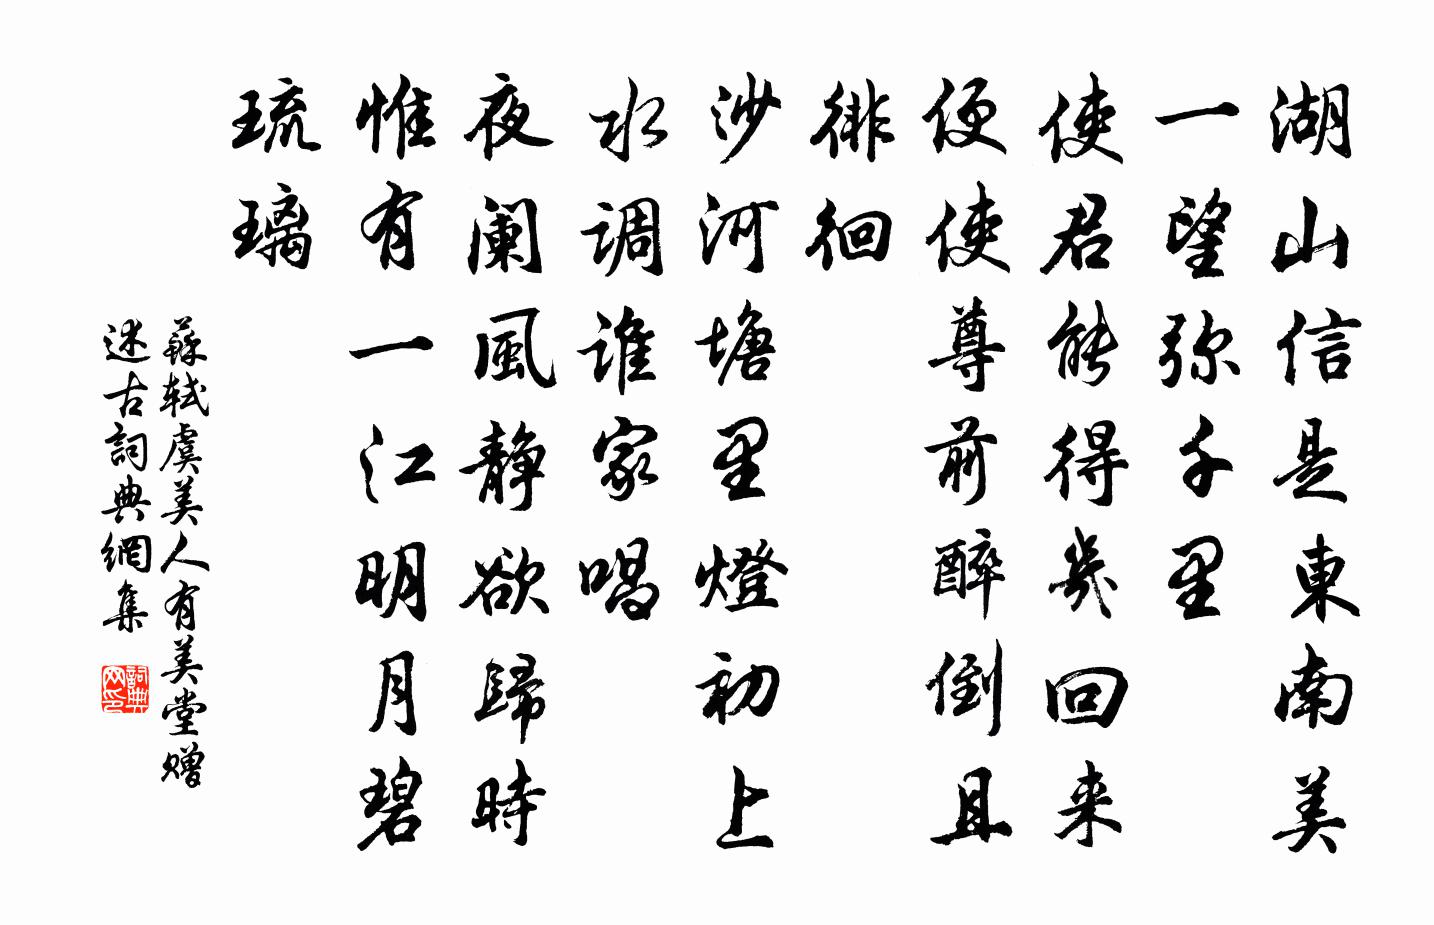 湖山信是東南美
一望弥千里
使君能得幾回来
便使尊前醉倒且
徘徊
沙河塘里燈初上
水调誰家唱
夜阑風静欲歸時
惟有一江明月碧
琉璃
蘇轼虞美人有美堂赠
述古詞典網集
詞典
网印